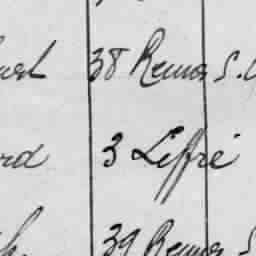 38 Rennes S.
rd 3 Liffré
39 Rennes S